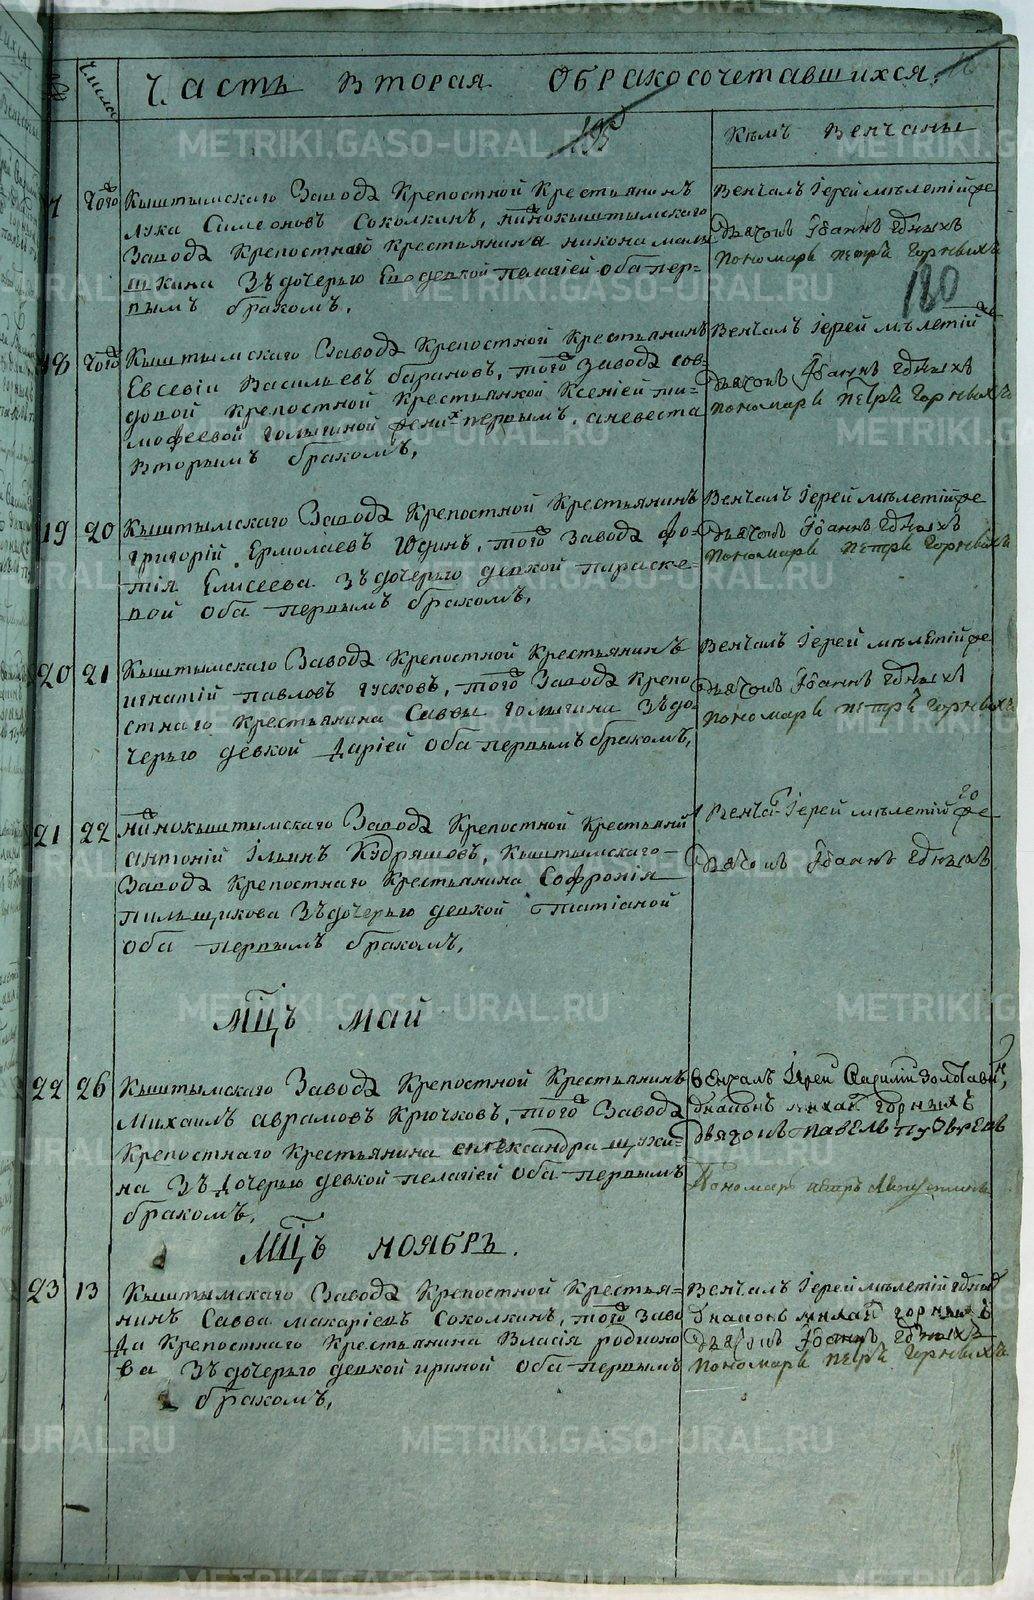 Числа
Часть Вторая О бракосочетавшихся.
195
Кѣмъ Венчаны
180
17 Того Кыштымскаго Завода Крепостной Крестьянинъ
Лука Симеоновъ Соколкинъ, нижнокыштымскаго
Завода Крепостнаго Крестьянина никона малы
шкина Зъ дочерью Его девкой пелагiей оба пер-
вымъ бракомъ,
Венчалъ Iерей мѣлетiй
Дьячокъ Iоаннъ
Пономарь петръ Горныхъ
18 Того Кыштымскаго Завода Крепостной Крестьянинъ
Евсевiи Васильевъ барановъ, того Завода со в-
довой Крепостной Крестьянкой Ксенiей ти-
мофеевой голыгиной женихъ первымъ, а невеста
вторымъ бракомъ,
Венчалъ Iерей мѣлетiй
Дьячокъ Iоаннъ
пономарь петръ Горныхъ
19 20 Кыштымскаго Завода Крепостной Крестьянинъ
григорiй Ермолаевъ Юдинъ, того Завода фо-
тiя Елисеева Зъ дочерью девкой параске-
вой оба первымъ бракомъ,
Венчалъ Iерей мѣлетiй
Дьячокъ Iоаннъ
Пономарь петръ Горныхъ
20 21 Кыштымскаго Завода Крепостной Крестьянинъ
игнатiй павловъ гусковъ, того Завода Крепо
стнаго Крестьянина Саввы голыгина Зъ до-
черью девкой Дарiей оба первымъ бракомъ,
Венчалъ Iерей мѣлетiй
Дьячокъ Iоаннъ
пономарь петръ Горныхъ
21 22 нижнокыштымскаго Завода Крепостной Крестьяни
антонiй Iльинъ Кудряшовъ, Кыштымскаго
Завода Крепостнаго Крестьянина Софронiя
пильщикова Зъ дочерью девкой татiаной
оба первымъ бракомъ,
Iерей мѣлетiй
Дьячокъ Iоаннъ
Мцъ май
22 26 Кыштымскаго Завода Крепостной Крестьянинъ
Михаилъ аврамовъ Крючковъ, того Завода
Крепостнаго Крестьянина александра щуки-
на Зъ дочерью девкой пелагiей оба первымъ
бракомъ,
Венчалъ Iерей Василiй
дiаконъ михаи горныхъ
Дьячокъ павелъ
Пономарь петръ
Мцъ ноябрь.
23 13 Кыштымскаго Завода Крепостной Крестья-
нинъ Савва макарiевъ Соколкинъ, того Заво
да Крепостнаго Крестьянина Власiя родионо
ва Зъ дочерью девкой ириной оба первымъ
бракомъ,
Венчалъ Iерей мѣлетiй
дiаконъ михаи горныхъ
Дьячокъ Iоаннъ
пономарь петръ Горныхъ
METRIKI.GASO-URAL.RU